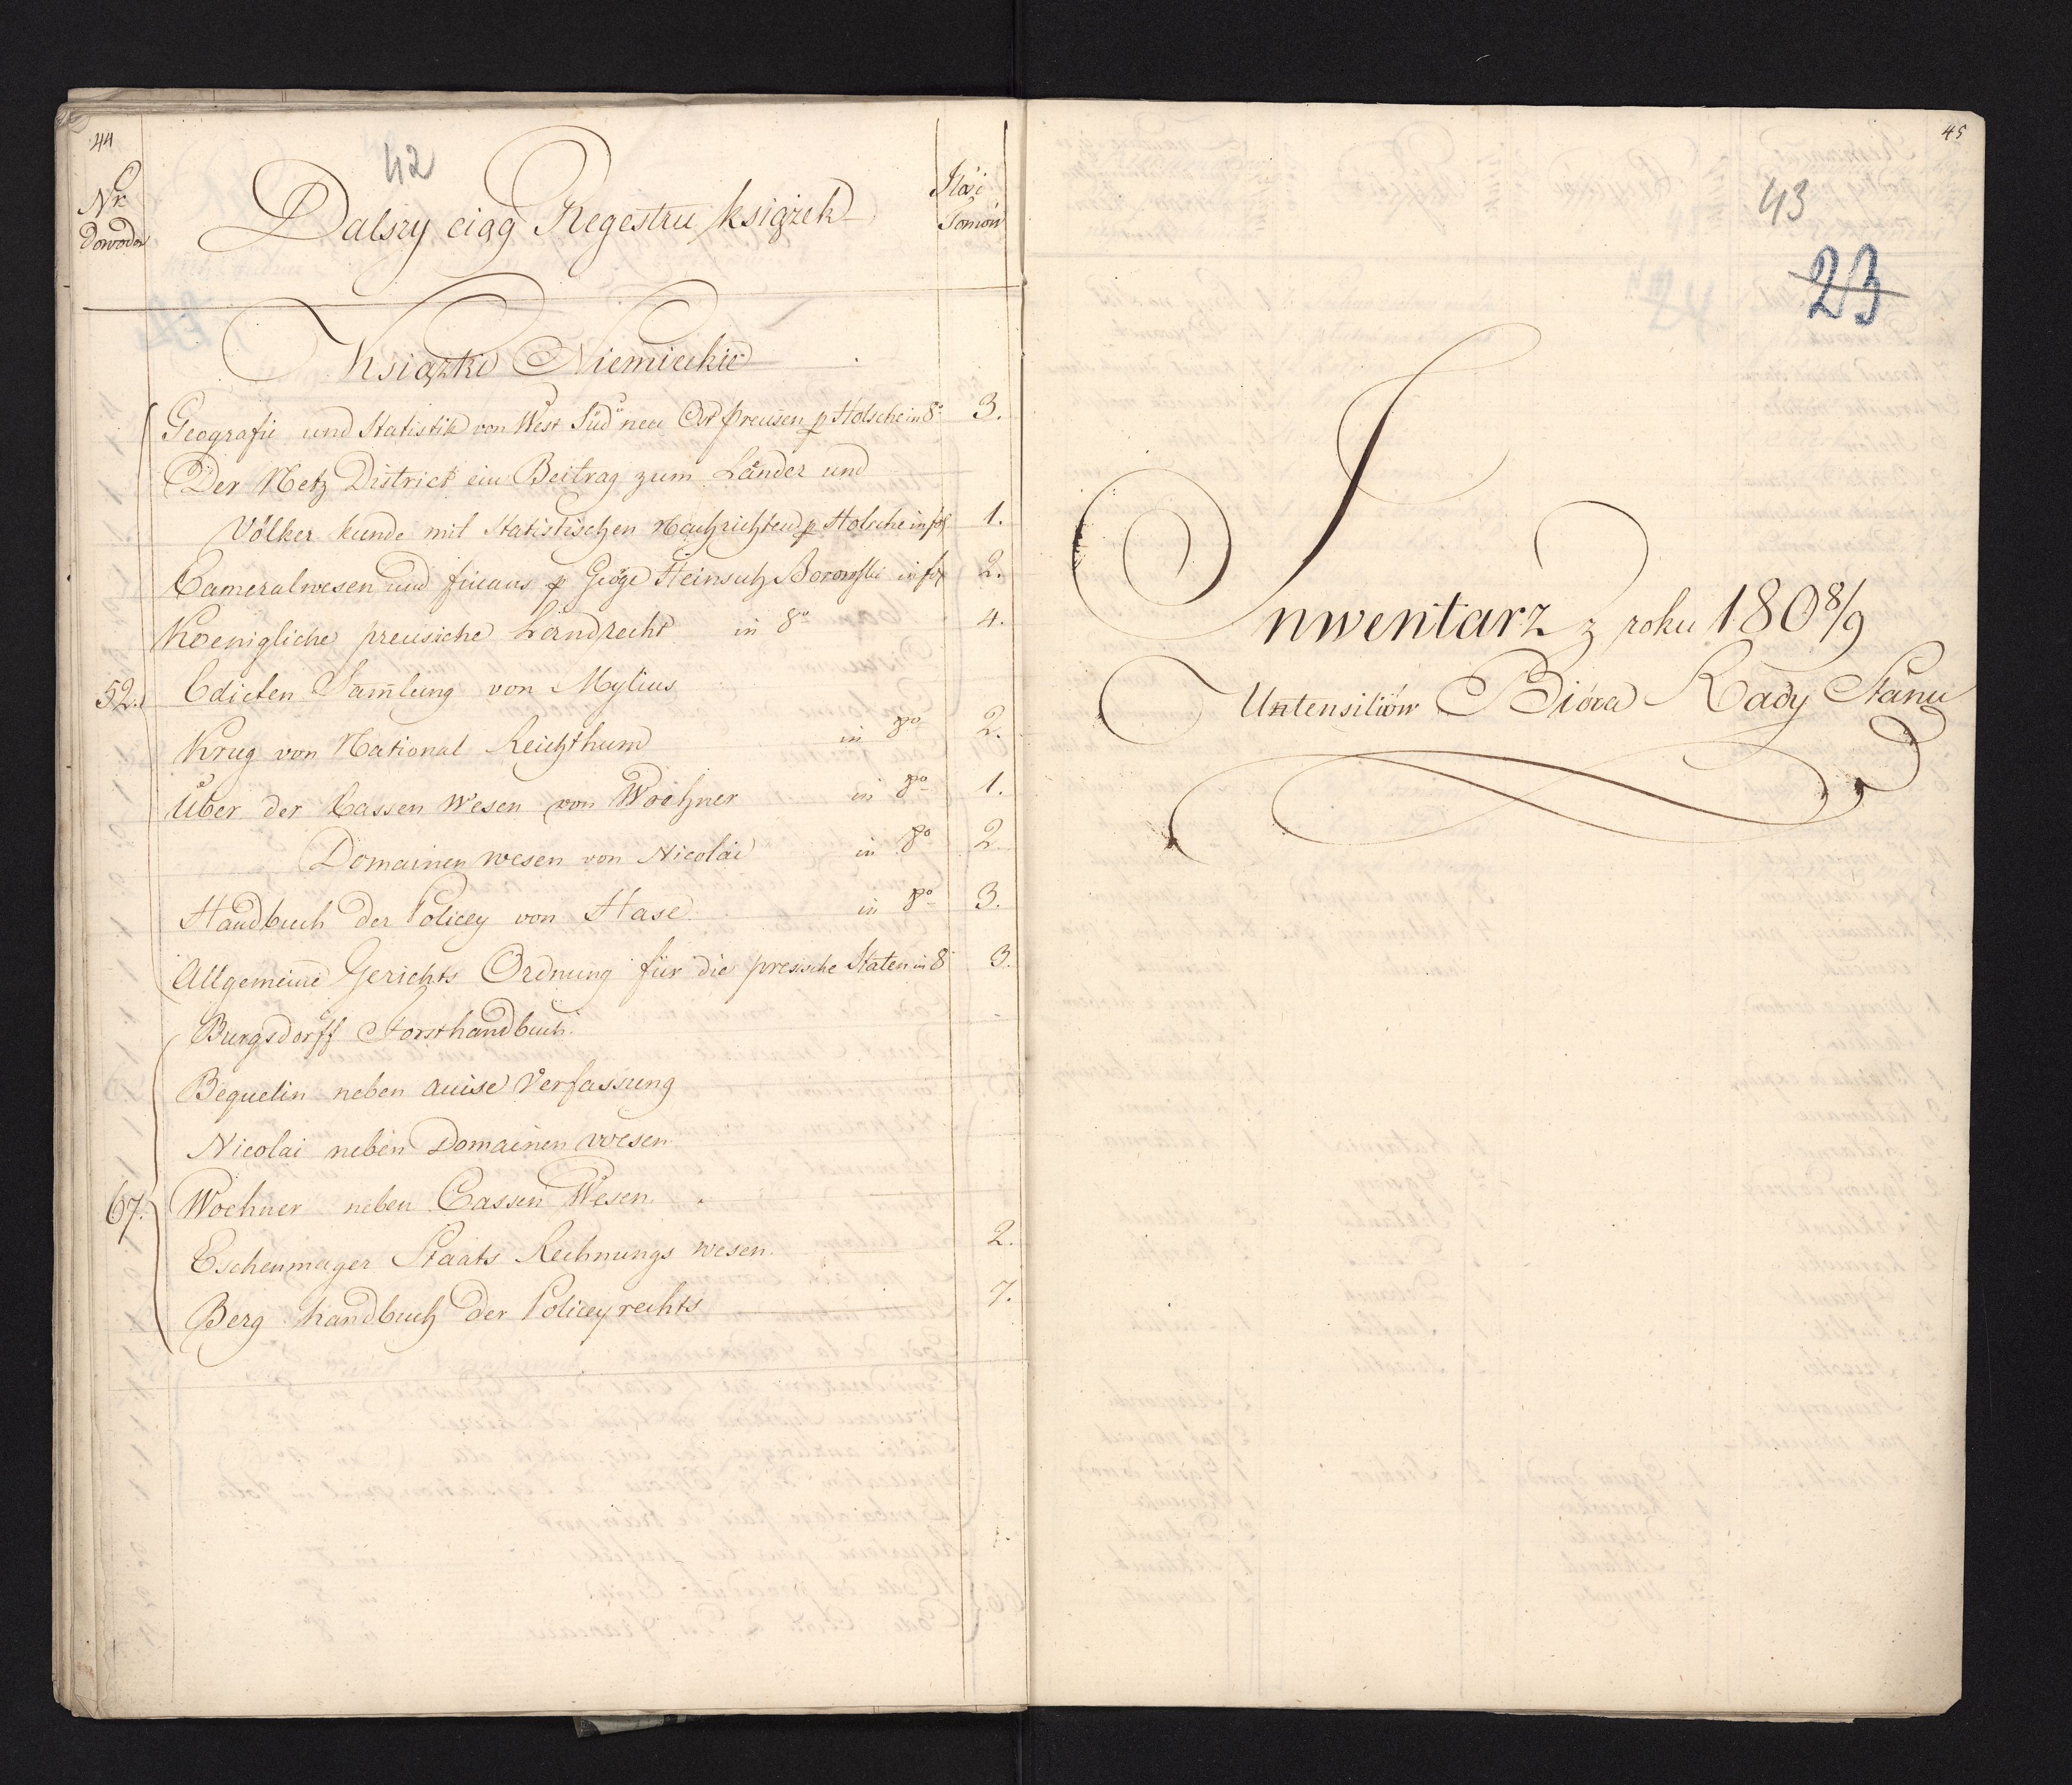 44
42
Nr
Dowodu
Dalszy ciąg Regestru książek
Ilość
Tomów
Książki Niemieckie
Geografie und Statistik von West Süd neu Ost preusen p Holsche in 8o 3.
Der Netz District ein Beitrag zum Länder und
Völker kunde mit Statistischen Nachrichten p Holsche in fol 1.
Cameralwesen und finans p George Heinsich Borowski in fol 2.
Koenigliche preusiche Landrecht in 8o 4.
52. Edicten Sam̄lung von Mylius
Krug von National Reichthum in 8o 2.
Über der Cassen Wesen von Woehner in 8o 1.
Domainen wesen von Nicolai in 8o 2
Handbuch der Policey von Hase in 8o 3.
Allgemeine Gerichts Ordnung für die presische Staten in 8 3.
Burgsdorff Forsthandbuch.
Bequelin neben auise Verfassung
Nicolai neben Domainen wesen
67. Woehner neben Cassen Wesen.
Eschenmayer Staats Rechnungs wesen. 2.
Berg handbuch der Policey rechts 7.
45
43
23
Inwentarz z roku 1808/9
Untensiliów Bióra Rady Stanu